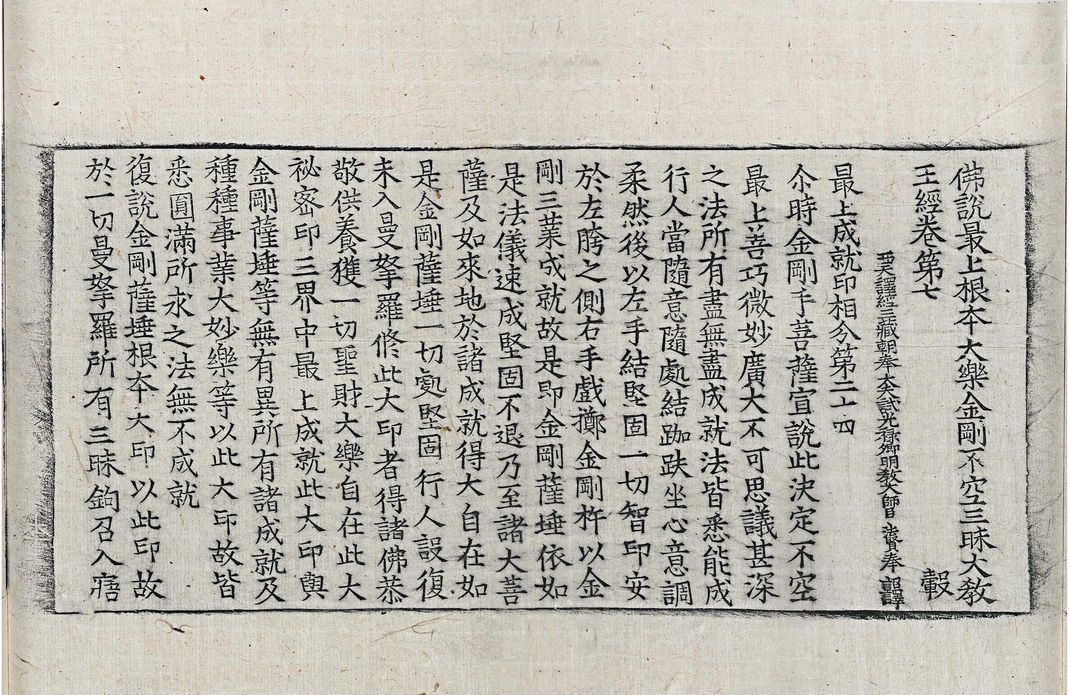 佛說最上根本大樂金剛不空三昧大教
王經卷第七　轂
西天譯經三藏朝奉大夫試光祿卿明教大師臣法賢奉　詔譯
最上成就印相分第二十四
尒時金剛手菩薩宣說此決定不空
最上善巧微妙廣大不可思議甚深
之法所有盡無盡成就法皆悉能成
行人當隨意隨處結跏趺坐心意調
柔然後以左手結堅固一切智印安
於左胯之側右手戲擲金剛杵以金
剛三業成就故是即金剛薩埵依如
是法儀速成堅固不退乃至諸大菩
薩及如來地於諸成就得大自在如
是金剛薩埵一切處堅固行人設復
未入曼拏羅修此大印者得諸佛恭
敬供養獲一切聖財大樂自在此大
祕密印三界中最上成就此大印與
金剛薩埵等無有異所有諸成就及
種種事業大妙樂等以此大印故皆
悉圓滿所求之法無不成就
復說金剛薩埵根本大印以此印故
於一切曼拏羅所有三昧鉤召入寤